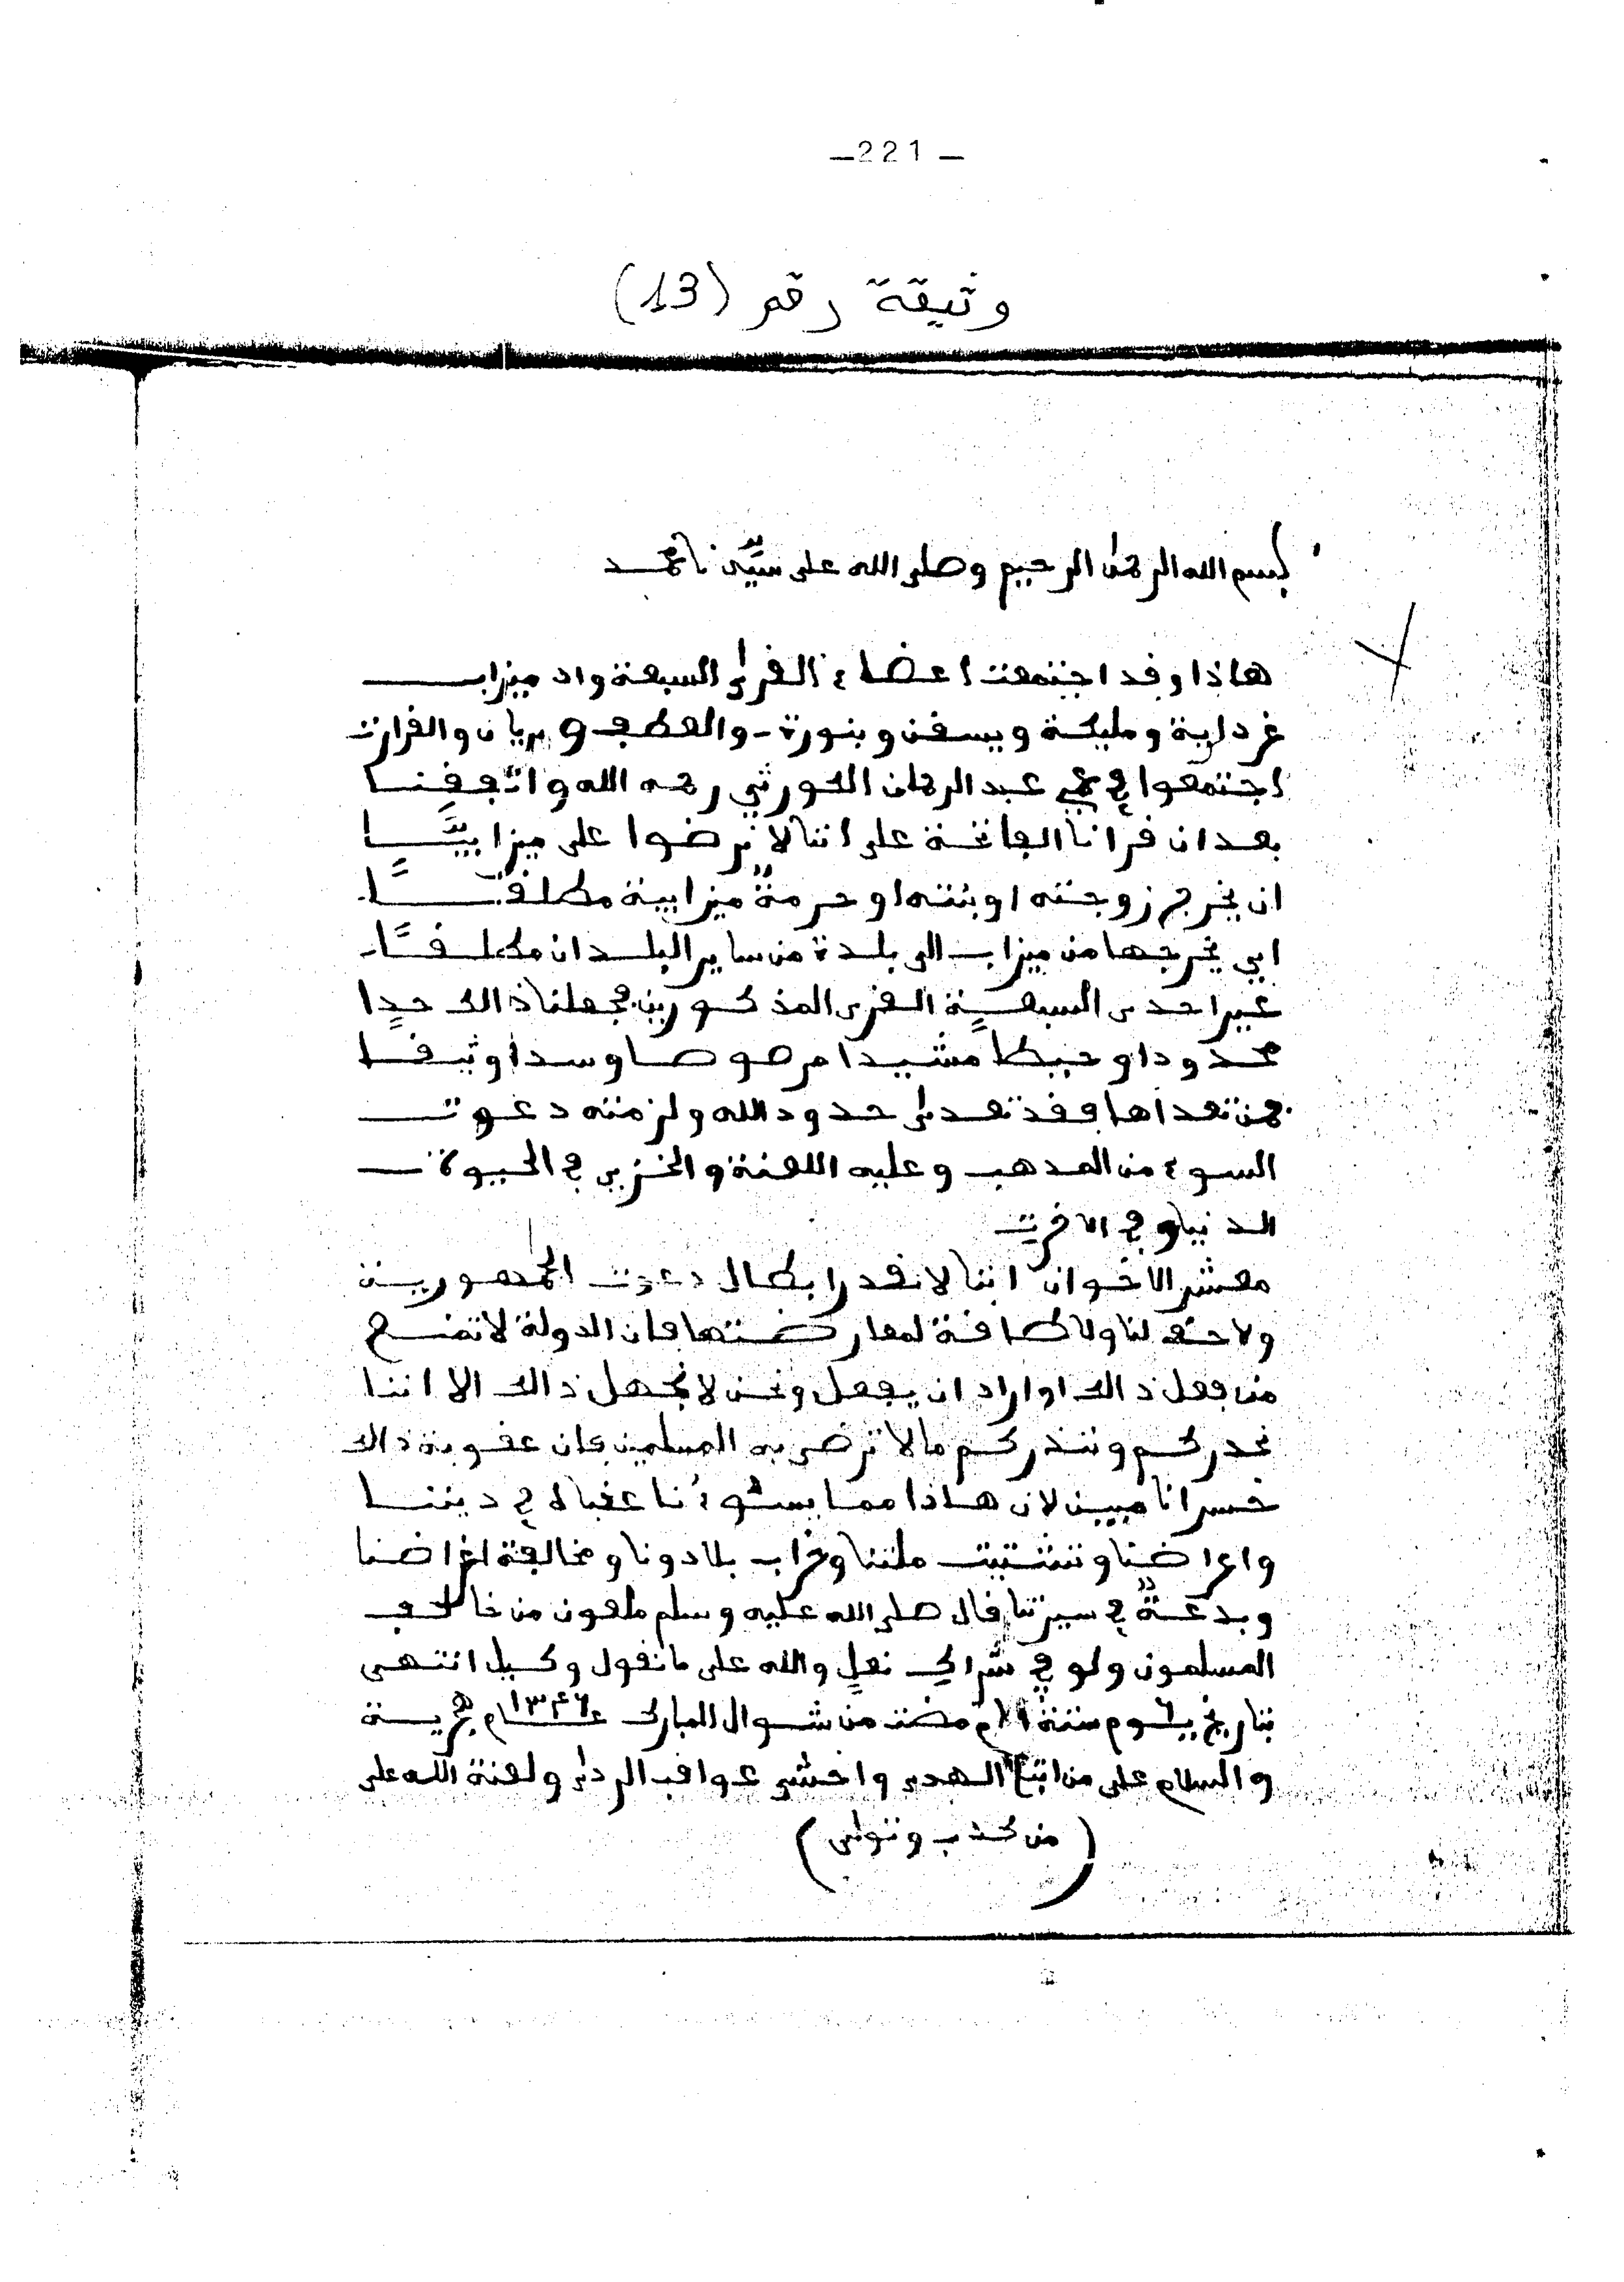 —221—
وثيقة رقم (13)
بسم الله الرحمن الرحيم وصلى الله على سيدنا محمد
هاذا وقد اجتمعت اعضاء القرى السبعة واد ميزاب
غرداية ومليكة ويسقن وبنورة والعطف وبريان والقرارت
اجتمعوا في عبد الرحمان الكورثي رحمه الله واتفقنا
بعد ان قرانا الفاتحة على اننا لا نرضوا على ميزابيًّا
ان يخرج زوجته او بنته او حرمةً ميزابية مطلقًا
ايي يخرجها من ميزاب الى بلدة من ساير البلدان مطلقًا
غير احدى السبعةِ القرى المذكورين فجعلنا ذالك حدا
محدودا وحيطا مشيدا مرصوصا وسدا وثيقا
فمن تعداها فقد تعدى حدود الله ولزمته دعوت
السوء من المذهب وعليه اللعنة والخزي في الحيوة
الدنيا وفي الاخرت
معشر الاخوان اننا لا نقدر ابطال دعوت الجمهورية
ولا حق لنا ولا طاقة لمعارضتها فان الدولة لا تمنع
من فعل ذالك او اراد ان يفعل ونحن لا نجهل ذالك الا اننا
نحدركم وننذركم ما لا ترضى به المسلمين فان عقوبة ذالك
خسرانا مبين لان هاذا مما يسوءنا عقباه في ديننا
واعراضنا وتشتيت ملتنا وخراب بلادونا ومخالفة اغراضنا
وبدعةً في سيرتنا قال صلى الله عليه وسلم ملعون من خالف
المسلمون ولو في شراك نعلٍ والله على ما نقول وكيل انتهى
بتاريخ يوم ستة ايام مضت من شوال المبارك عام ١٣٤٦ هجرية
والسلام على من اتبع الهدى واخشى عواقب الردى ولعنة الله على
(من كذب وتولى)